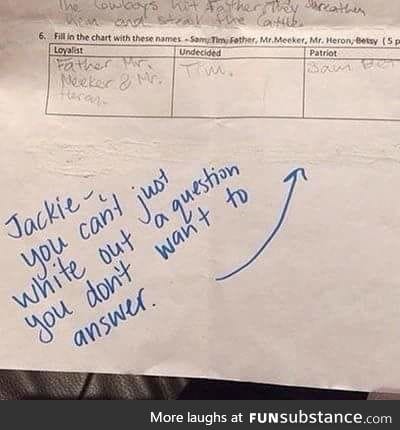 The Cowboys hit Father. They threaten
them and steal the Cattle.
6. Fill in the chart with these names - Sam, Tim, Father, Mr.Meeker, Mr. Heron, Betsy (5 p
Loyalist Undecided Patriot
Father Mr. Tim. Sam Bet
Meeker & Mr.
Heron.
Jackie-
you can't just
white out a question
you don't want to
answer.
More laughs at FUNsubstance.com